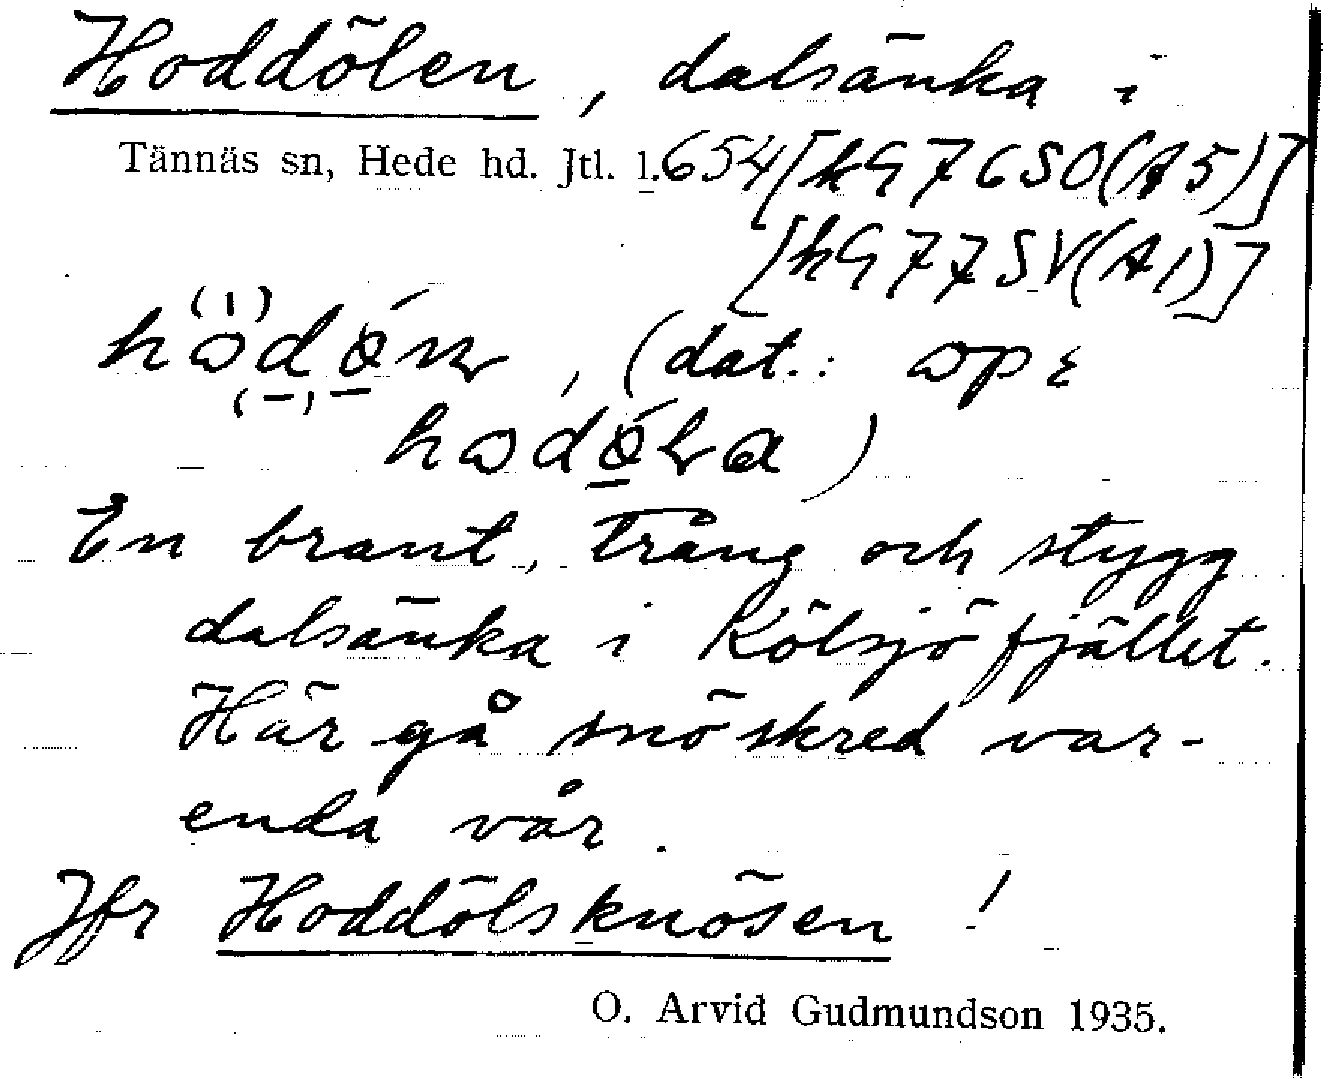 Hoddölen, dalsänka i
Tännäs sn, Hede hd. Jtl. l. 654 [kG76SO(A5)]
[kG77SV(A1)]
(dat.:
En brant, trång och stygg
dalsänka i Kölsjöfjället.
Här gå snöskred var-
enda vår.
Jfr Hoddölsknösen!
O. Arvid Gudmundson 1935.